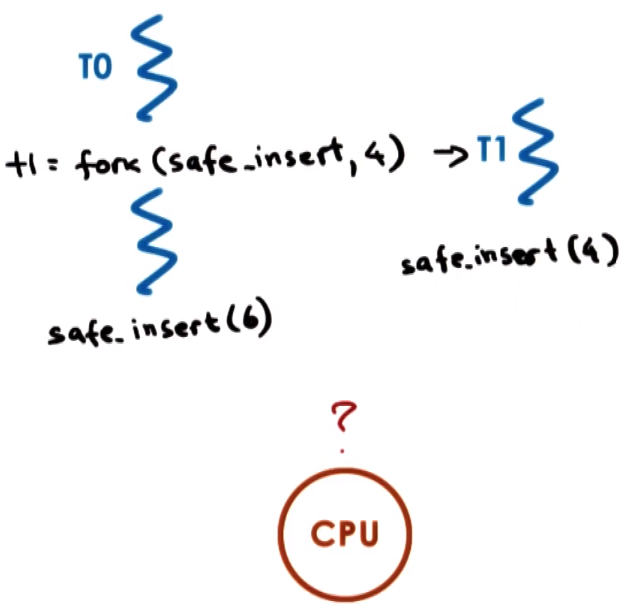 T0
t1 = fork (safe_insert, 4) → T1
safe_insert(4)
safe_insert(6)
?
CPU